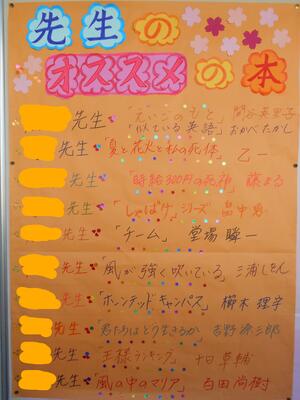 先生の
オススメの本
先生・「えいごのもと」 関谷英里子
「似ている英語」おかべたかし
先生・「夏と花火と私の死体」乙一
先生・「時給300円の死神」藤まる
先生・「しゃばけ」シリーズ 畠中恵
先生・「チーム」 堂場瞬一
先生・「風が強く吹いている」三浦しをん
先生・「ホーンテッドキャンパス」櫛木理宇
先生・「君たちはどう生きるか」吉野源三郎
先生・「王様ランキング」十日草輔
先生・「風の中のマリア」百田尚樹